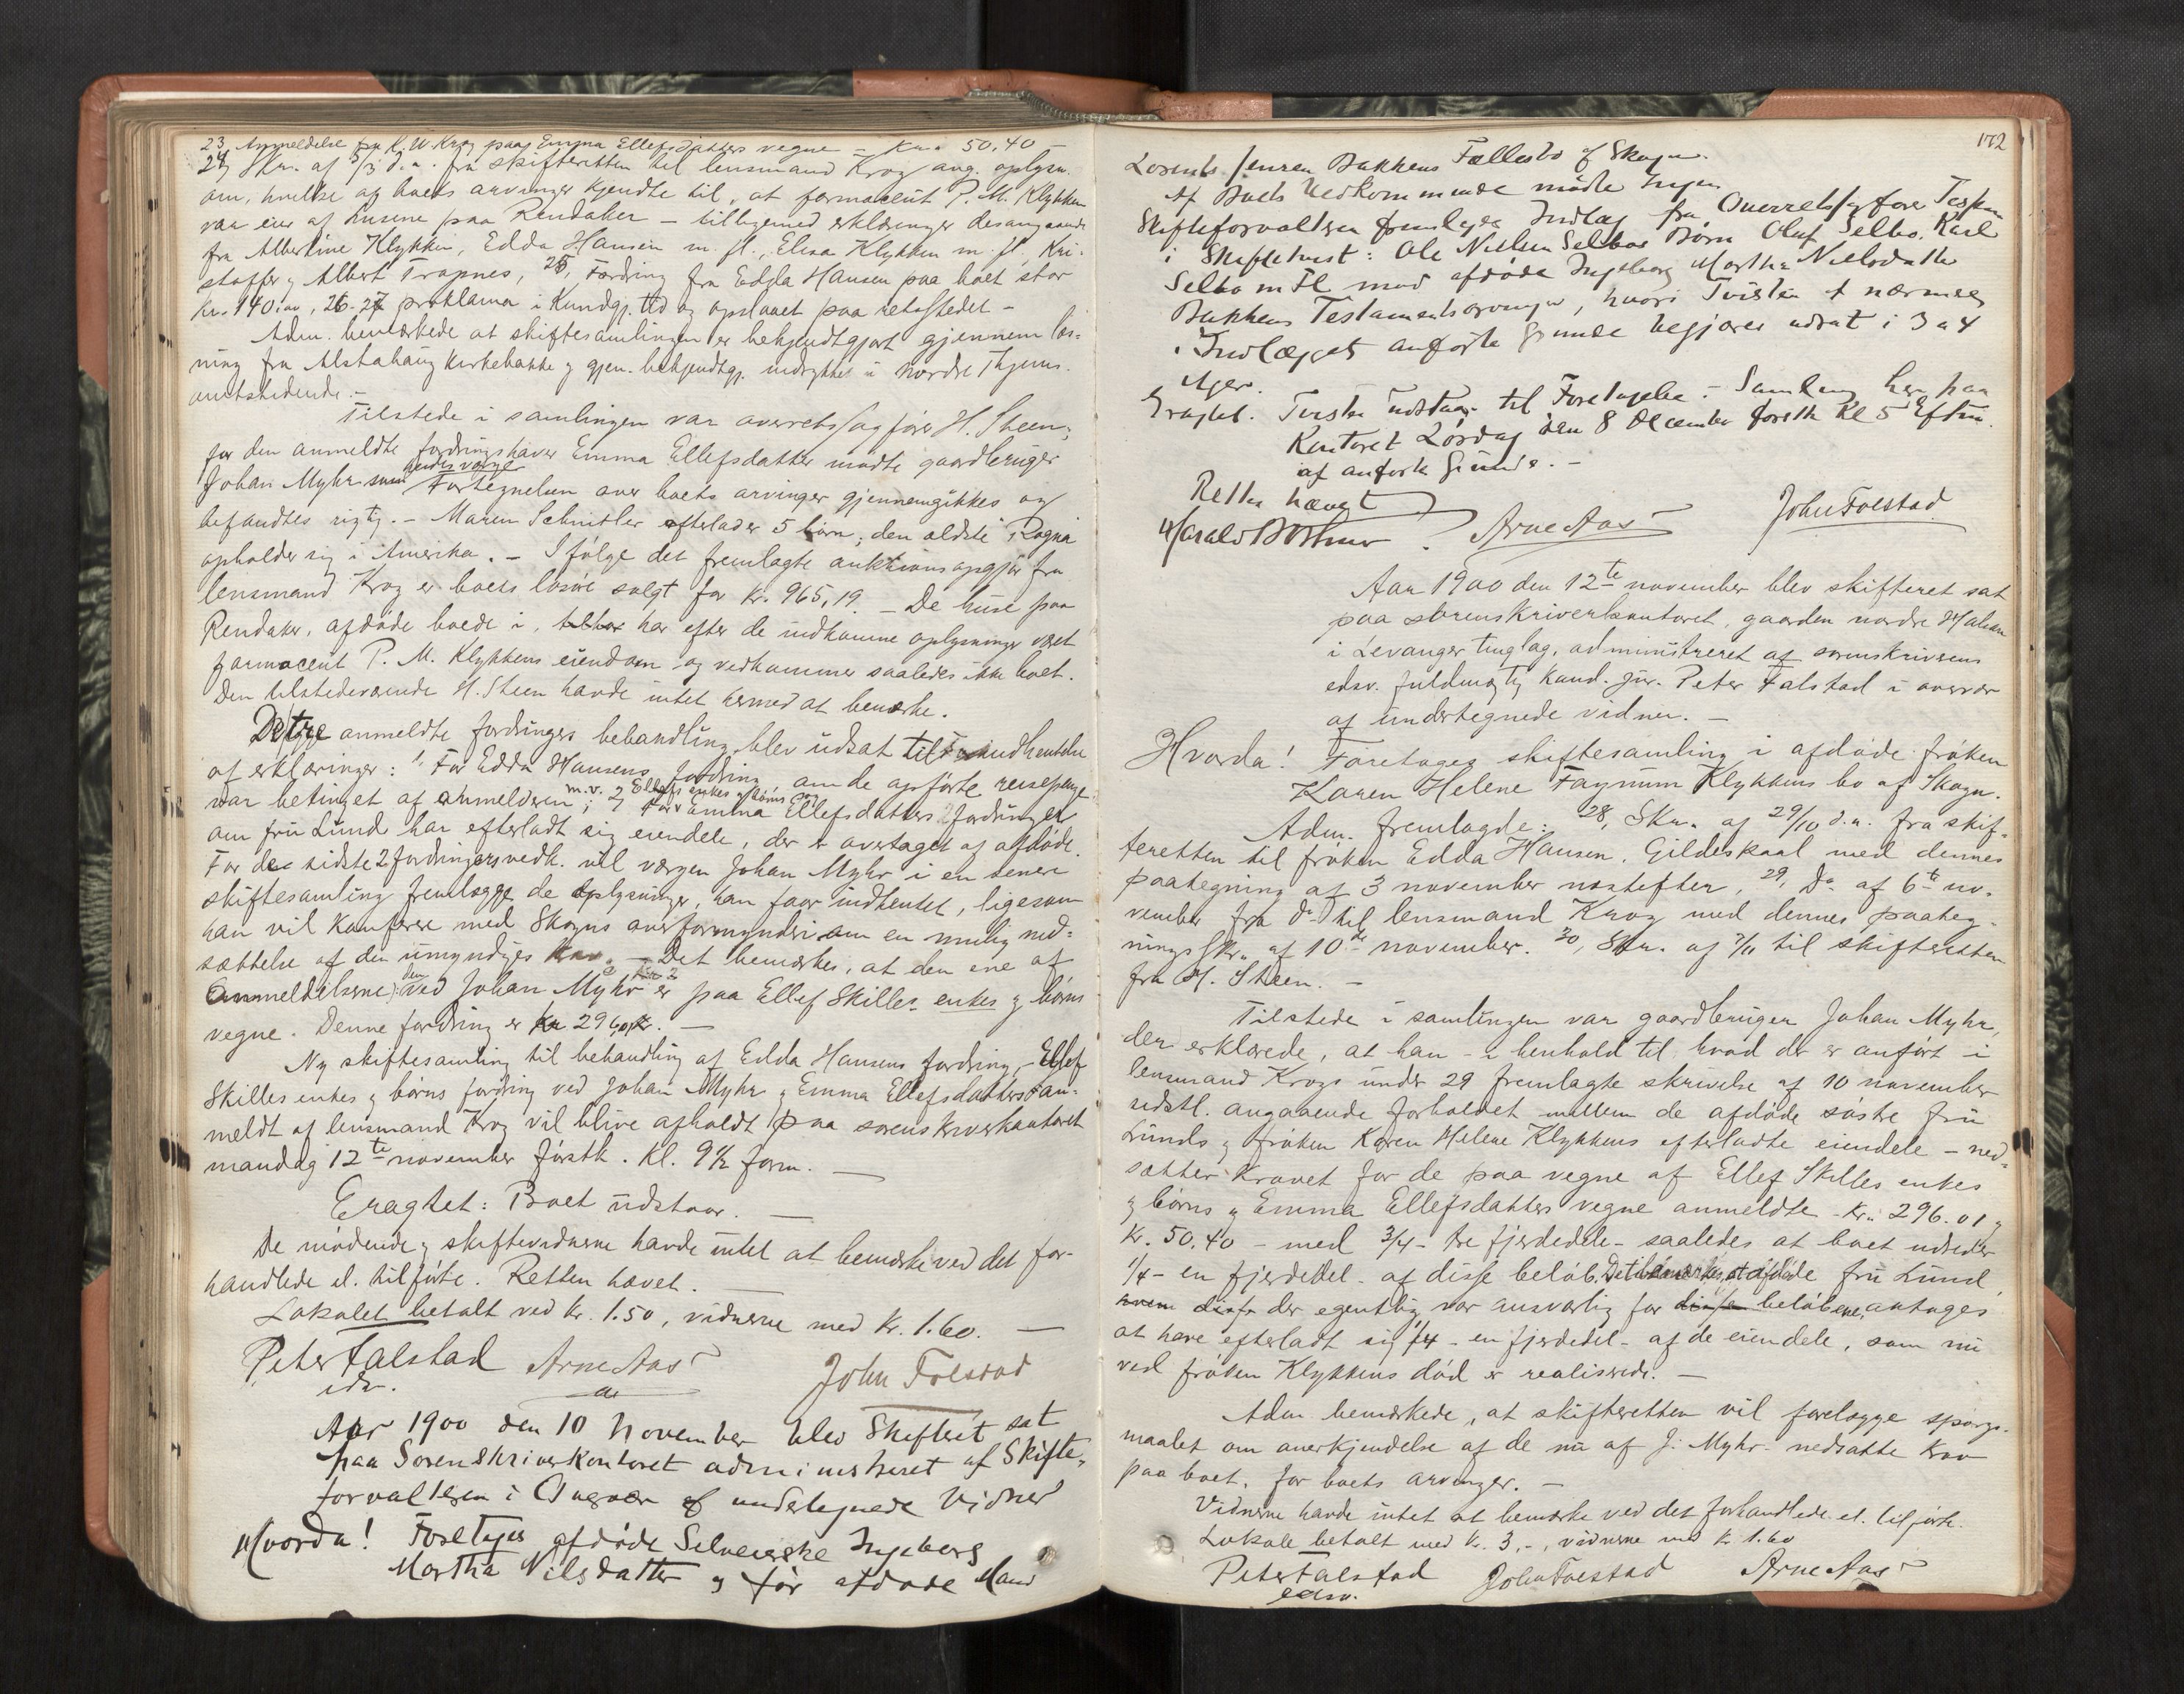 23 Anmeldelse fra K. W. Krog paa Emma Ellefsdatters vegne – Kr. 50,40 –
24, Skr. af 5/3 d. a. fra skifteretten til lensmand Krog ang. oplysn.
om, hvilke af boets arvinger kjendte til, at farmaceut P. M. Klykken
var eier af husene paa Rendaker – tilligemed erklæringer desangaaende
fra Albertine Klykken, Edda Hansen m. fl., Elisa Klykken m. fl., Kri-
stoffer og Albert Trapnes, 25, Fordring fra Edda Hansen paa boet stor
Kr. 140.00, 26. 27 proklama i Kundgj. tid og opslaaet paa retsstedet –
Adm. bemærkede at skiftesamlingen er bekjendtgjort gjennem læs-
ning fra Alstahaug kirkebakke og gjen. bekjendtgj. indrykket i Nordre Thjems.
amtstidende. –
Tilstede i samlingen var overretssagfører H. Steen;
for den anmeldte fordringshaver Emma Ellefsdatter mødte gaardbruger
Johan Myhr som hendes værge Fortegnelsen over boets arvinger gjennemgikkes og
befandtes rigtig. – Maren Schnitler efterlader 5 børn; den ældste Ragna
opholder sig i Amerika. – Ifølge det fremlagte auktionsopgjør fra
lensmand Krog er boets løsøre solgt for Kr. 965,19. – De huse paa
Rendaker, afdøde boede i, har efter de indkomne oplysninger været
farmaceut P. M. Klykkens eiendom og vedkommer saaledes ikke boet.
Den tilstedeværende H. Steen havde intet hermed at bemærke.
De tre anmeldte fordringers behandling blev udsat til indhentelse
af erklæringer: 1, For Edda Hansens fordring om de opførte reisepenge
var betinget af anmelderen m.v.; 2 Ellefs enkes og børns og For Emma Ellefsdatters 2 fordringer
om fru Lund har efterladt sig eiendele, der er overtaget af afdøde.
For de sidste 2 fordringers vedk. vil værgen Johan Myhr i en senere
skiftesamling fremlægge de oplysninger, han faar indhentet, ligesom
han vil konferere med Skogns overformynderi om en mulig ned-
sættelse af den umyndiges krav. – Det bemærkes, at den ene af
Anmeldelserne, den ved Johan Myhr er paa Ellef Skilles enkes og børns
vegne. Denne fordring er Kr 296,01. –
Ny skiftesamling til behandling af Edda Hansens fordring, – Ellef
Skilles enkes og børns fordring ved Johan Myhr og Emma Ellefsdatters an-
meldt af lensmand Krog vil blive afholdt paa sorenskriverkontoret
mandag 12te november førstk. Kl. 9½ form. –
Eragtet: Boet udstaar. –
De mødende og skiftevidnerne havde intet at bemærke ved det for-
handlede el. tilførte. Retten hævet. –
Lokalet betalt ved Kr. 1.50, vidnerne med Kr. 1.60. –
Peter Falstad Arne Aas John Folstad
edsv.
Aar 1900 den 10 November blev Skifteret sat
paa Sorenskriverkontoret administreret af Skifte-
forvalteren i Overvær af undertegnede Vidner
Hvorda! Foretages afdøde Selveierske Ingeborg
Martha Nilsdatter og før afdøde Mand
172
Lorents Jensen Bakkens Fællesbo af Skogn.
Af Boets Vedkommende mødte Ingen
Skifteforvalteren fremlagde Indlæg fra Overretssagfører
i Skiftetvist: Ole Nielsen Selbos Børn Oluf Selbo, Karl
Selbo m Fl mod afdøde Ingeborg Martha Nielsdatter
Bakkens Testamentsarvinger, hvori Tvisten af nærmere
i Indlægget anførte Grunde begjæres udsat i 3 a 4
Uger.
Eragtet. Tvisten udstaar til Foretagelse i Samling her paa
Kontoret Lørdag den 8 December førstk Kl 5 Efterm.
af anførte Grunde. –
Retten hævet
Harald Bothner Arne Aas John Folstad
Aar 1900 den 12te november blev skifteret sat
paa sorenskriverkontoret, gaarden nordre Halsan
i Levanger tinglag, administreret af sorenskriverens
edsv. fuldmægtig kand. jur. Peter Falstad i overvær
af undertegnede vidner. –
Hvorda! Foretages skiftesamling i afdøde frøken
Karen Helene Faynum Klykkens bo af Skogn.
Adm. fremlagde: 28, Skr. af 29/10 d. a. fra skif-
teretten til frøken Edda Hansen, Gildeskaal med dennes
paategning af 3 november næstefter, 29, Do af 6te no-
vember fra do til lensmand Krog med dennes paateg-
nings skr. af 10de november. 30, Skr. af 7/11 til skifteretten
fra H. Steen. –
Tilstede i samlingen var gaardbruger Johan Myhr,
der erklærede, at han – i henhold til hvad der er anført i
lensmand Krogs under 29 fremlagte skrivelse af 10 november
sidstl. angaaende forholdet mellem de afdøde søstre fru
Lunds og frøken Karen Helene Klykkens efterladte eiendele – ned-
sætter kravet for de paa vegne af Ellef Skilles enkes
og børns og Emma Ellefsdatters vegne anmeldte Kr. 296.01 og
Kr. 50.40 – med 3/4 – tre fjerdedele – saaledes at boet udreder
1/4 – en fjerdedel – af disse beløb. Det bemærkes, at afdøde fru Lund,
der egentlig var ansvarlig for beløbene, antages
at have efterladt sig 1/4 – en fjerdedel – af de eiendele, som nu
ved frøken Klykkens død er realiserede. –
Adm bemærkede, at skifteretten vil forelægge spørgs-
maalet om anerkjendelse af de nu af J. Myhr nedsatte krav
paa boet, for boets arvinger. –
Vidnerne havde intet at bemærke ved det forhandlede el. tilførte.
Lokale betalt med Kr. 3,-, vidnerne med Kr 1.60
Peter Falstad John Folstad Arne Aas
edsv.